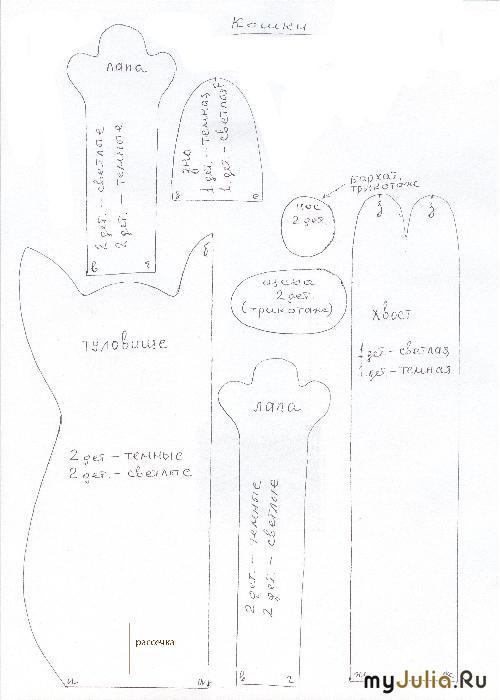 Кошки
лапа
2 дет. – светлые
2 дет. – темные
в г
дно
1 дет. – темная
1 дет. – светлая
бархат,
трикотаж
нос
2 дет.
щека
2 дет.
(трикотаж)
з з
хвост
1 дет – светлая
1 дет – темная
б
туловище
2 дет – темные
2 дет. – светлые
рассечка
лапа
2 дет. – темные
2 дет. – светлые
в г
myJulia.Ru